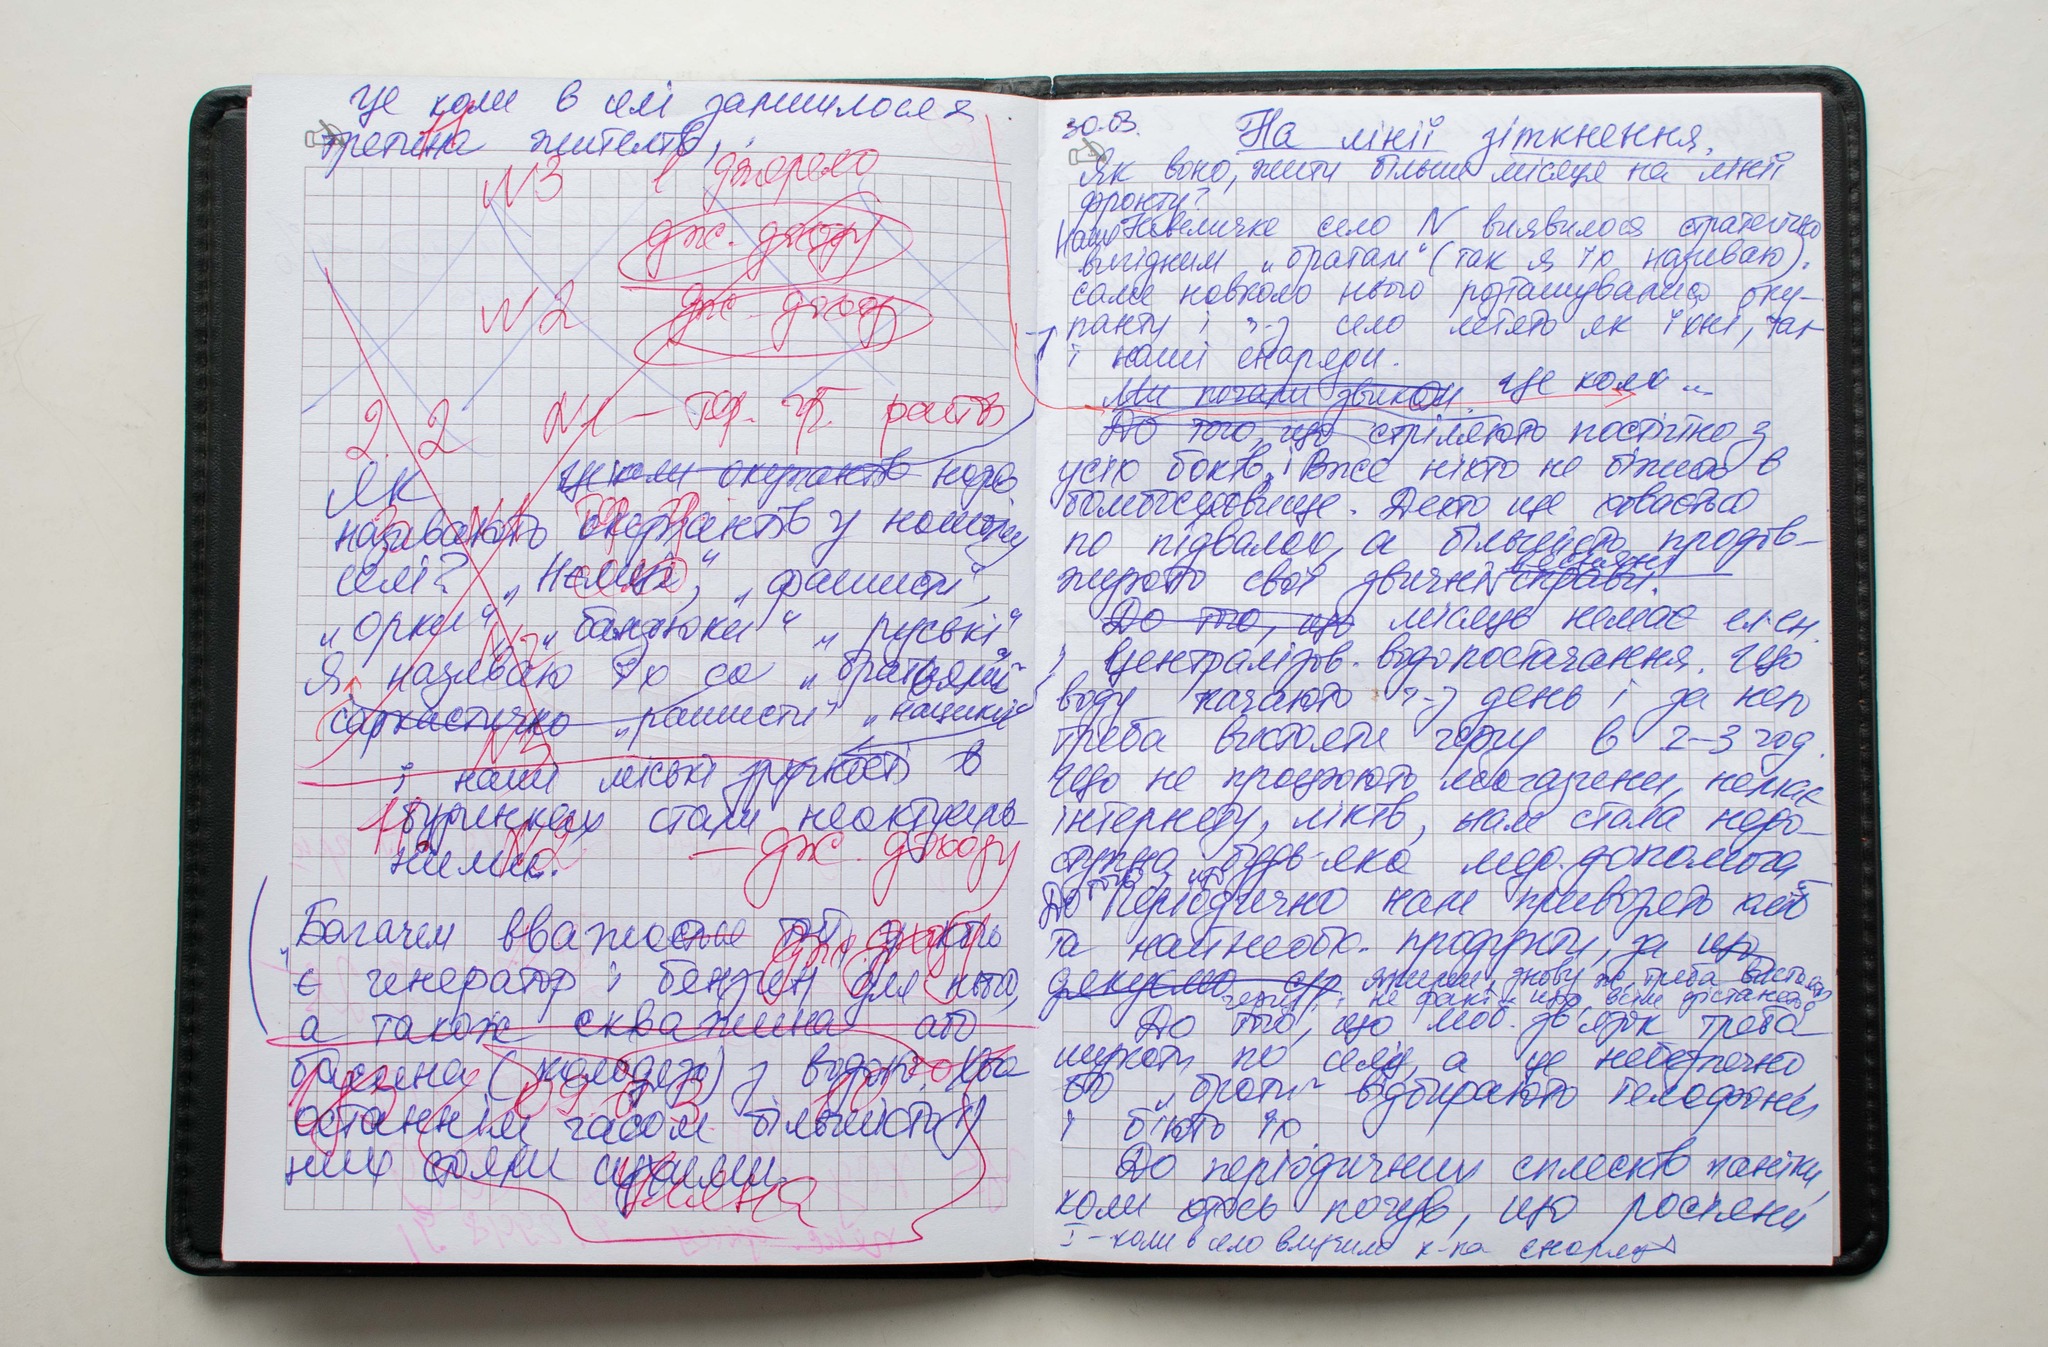 це коли в селі залишилося
третина жителів,
N3 1 джерело
дж. доходу
N2 дж. доходу
2. 2 N1 – тор. гр. раств
Як це коли окупантів
називають окупантів у нашому
селі? „Немці", „фашисти",
„орки" „бандюки" „руські"
Я називаю їх са „братвянні"
саркастично „рашисти" „нацики"
і наші міські зручності в
будинках стали неактуаль-
ними.
– дж. доходу
Багачем вважа той, у кого
є генератор і бензин для нього,
а також скважина або
басейна (колодязь) з водою.
останнім часом більшість у
них стояли сухими.
30.03. На лінії зіткнення.
Як воно, жити більше місяця на лінії
фронту?
Наше Невеличке село N виявилося стратегічно
вигідним „братам" (так я їх називаю).
саме навколо нього розташувались оку-
панти і ч-з село летять як їхні, так
і наші снаряди.
Ми почали звикати. Це коли ...
До того, що стріляють постійно з
усіх боків, і вже ніхто не біжить в
бомбосховище. Дехто ще ховається
по підвалах, а більшість продов-
жують свої звичні справи.
До того, що місяць немає ел.ен.
і централізов. водопостачання. Що
воду качають ч-з день і за нею
треба вистояти чергу в 2–3 год.
Що не працюють магазини, немає
інтернету, ліків, нам стала недо-
ступна будь-яка мед. допомога
До того, що Періодично нам привозять хліб
та найнеобх. продукти, за що
дякуємо знову ж треба вистояти
чергу і не факт що всім дістанеться
До того, що моб. зв'язок треба
шукати по селу, а це небезпечно
бо „брати" відбирають телефони
і б'ють їх.
До періодичних сплесків паніки,
коли хтось почув, що росіяни
І – коли в село влучило к-ка снарядів